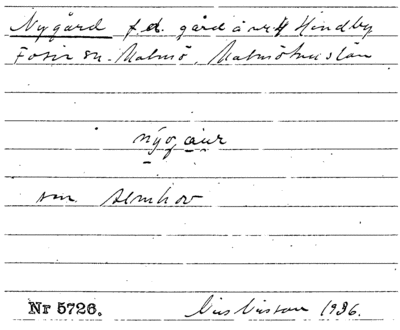 Nygård f.d. gård å nr 4 Hindby
Fosie sn. Malmö, Malmöhus län
nýgaur
sm. Stenkov
Nr 5726. Nils Nilsson 1936.